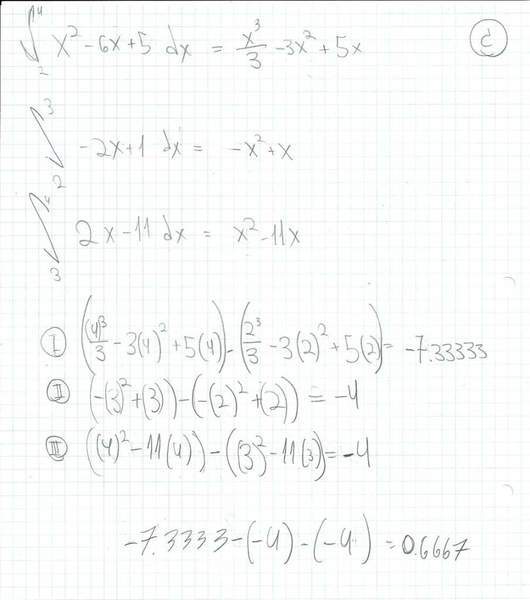 ∫₂⁴ x² - 6x + 5 dx = x³/3 - 3x² + 5x
∫₂³ -2x + 1 dx = -x² + x
∫₃⁴ 2x - 11 dx = x² - 11x
Ⓘ ((4)³/3 - 3(4)² + 5(4)) - (2³/3 - 3(2)² + 5(2)) = -7.33333
Ⓘ︎Ⓘ (-(3)² + (3)) - (-(2)² + (2)) = -4
ⒾⒾⒾ ((4)² - 11(4)) - ((3)² - 11(3)) = -4
-7.3333 - (-4) - (-4) = 0.6667